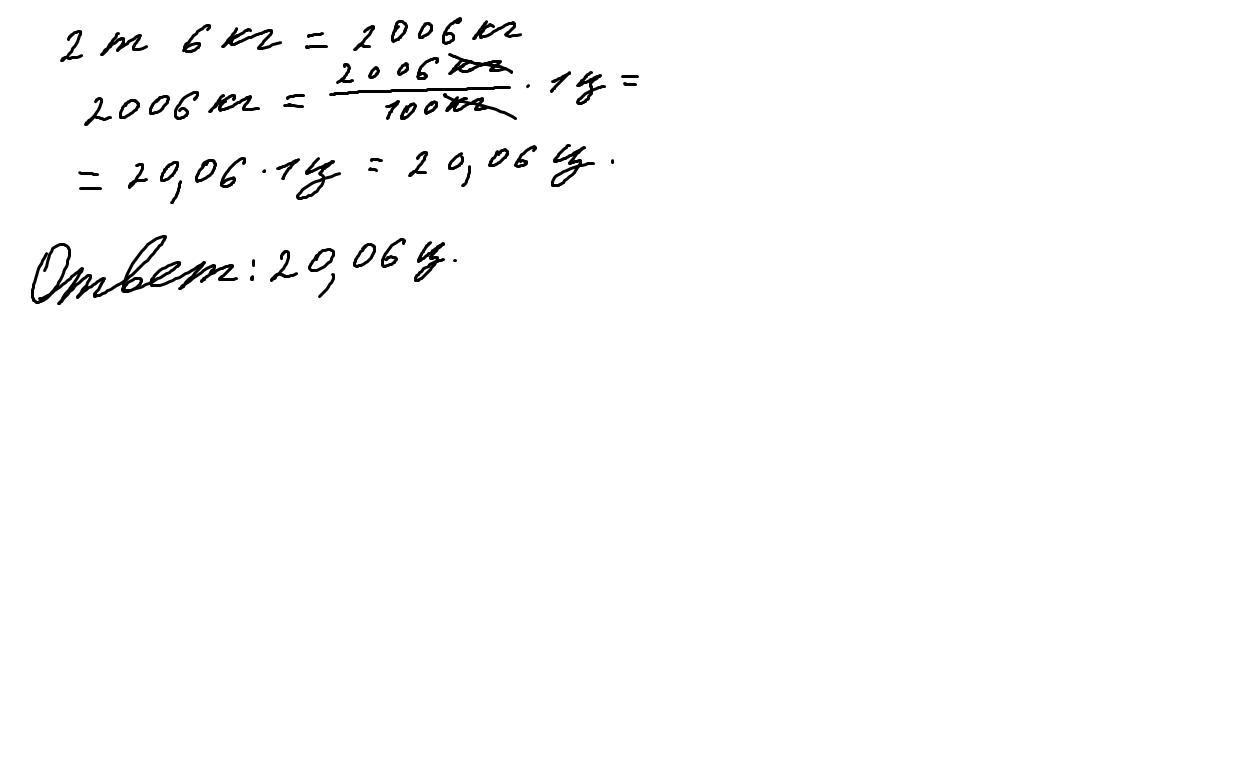 2 т 6 кг = 2006 кг
2006 кг = 2006 кг / 100 кг · 1 ц =
= 20,06 · 1 ц = 20,06 ц.
Ответ: 20,06 ц.